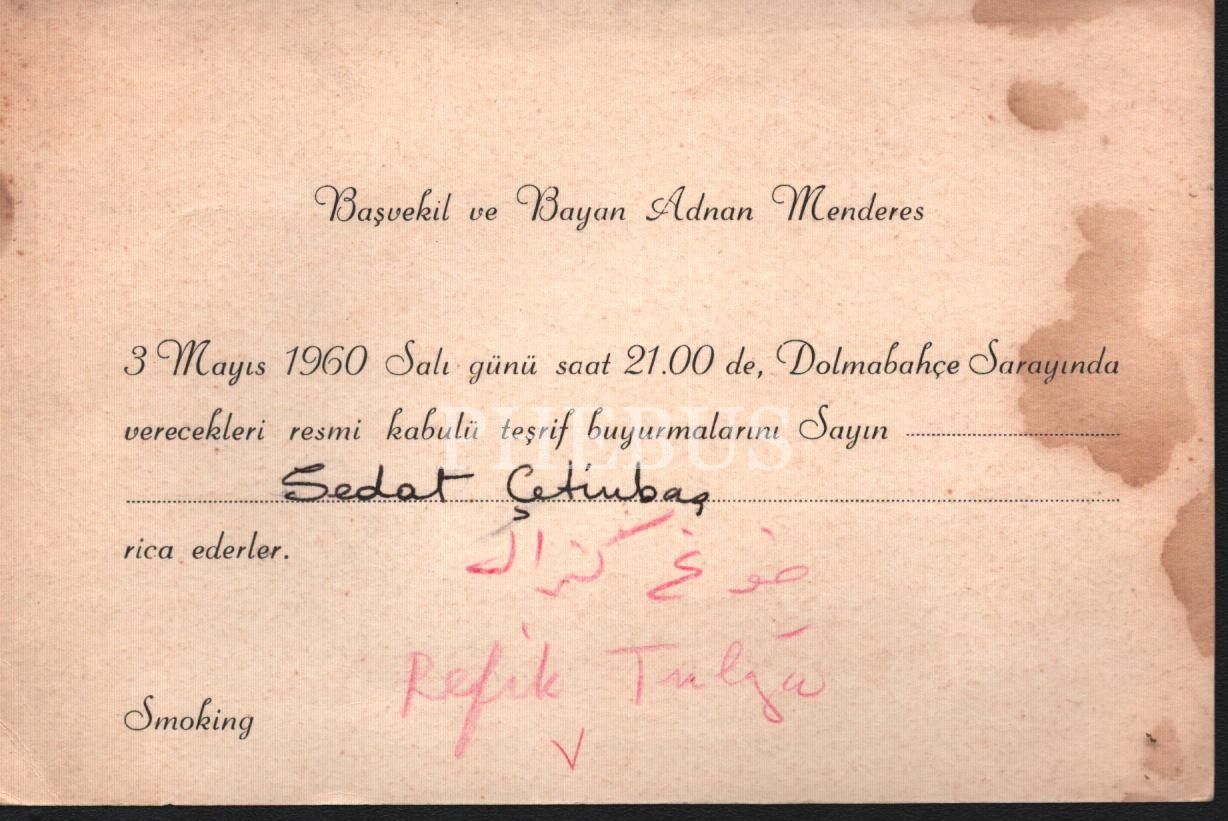 Başvekil ve Bayan Adnan Menderes
3 Mayıs 1960 Salı günü saat 21.00 de, Dolmabahçe Sarayında
verecekleri resmi kabulü teşrif buyurmalarını Sayın
PHEBUS
Sedat Çetinbaş
rica ederler.
Refik Tulga
Smoking